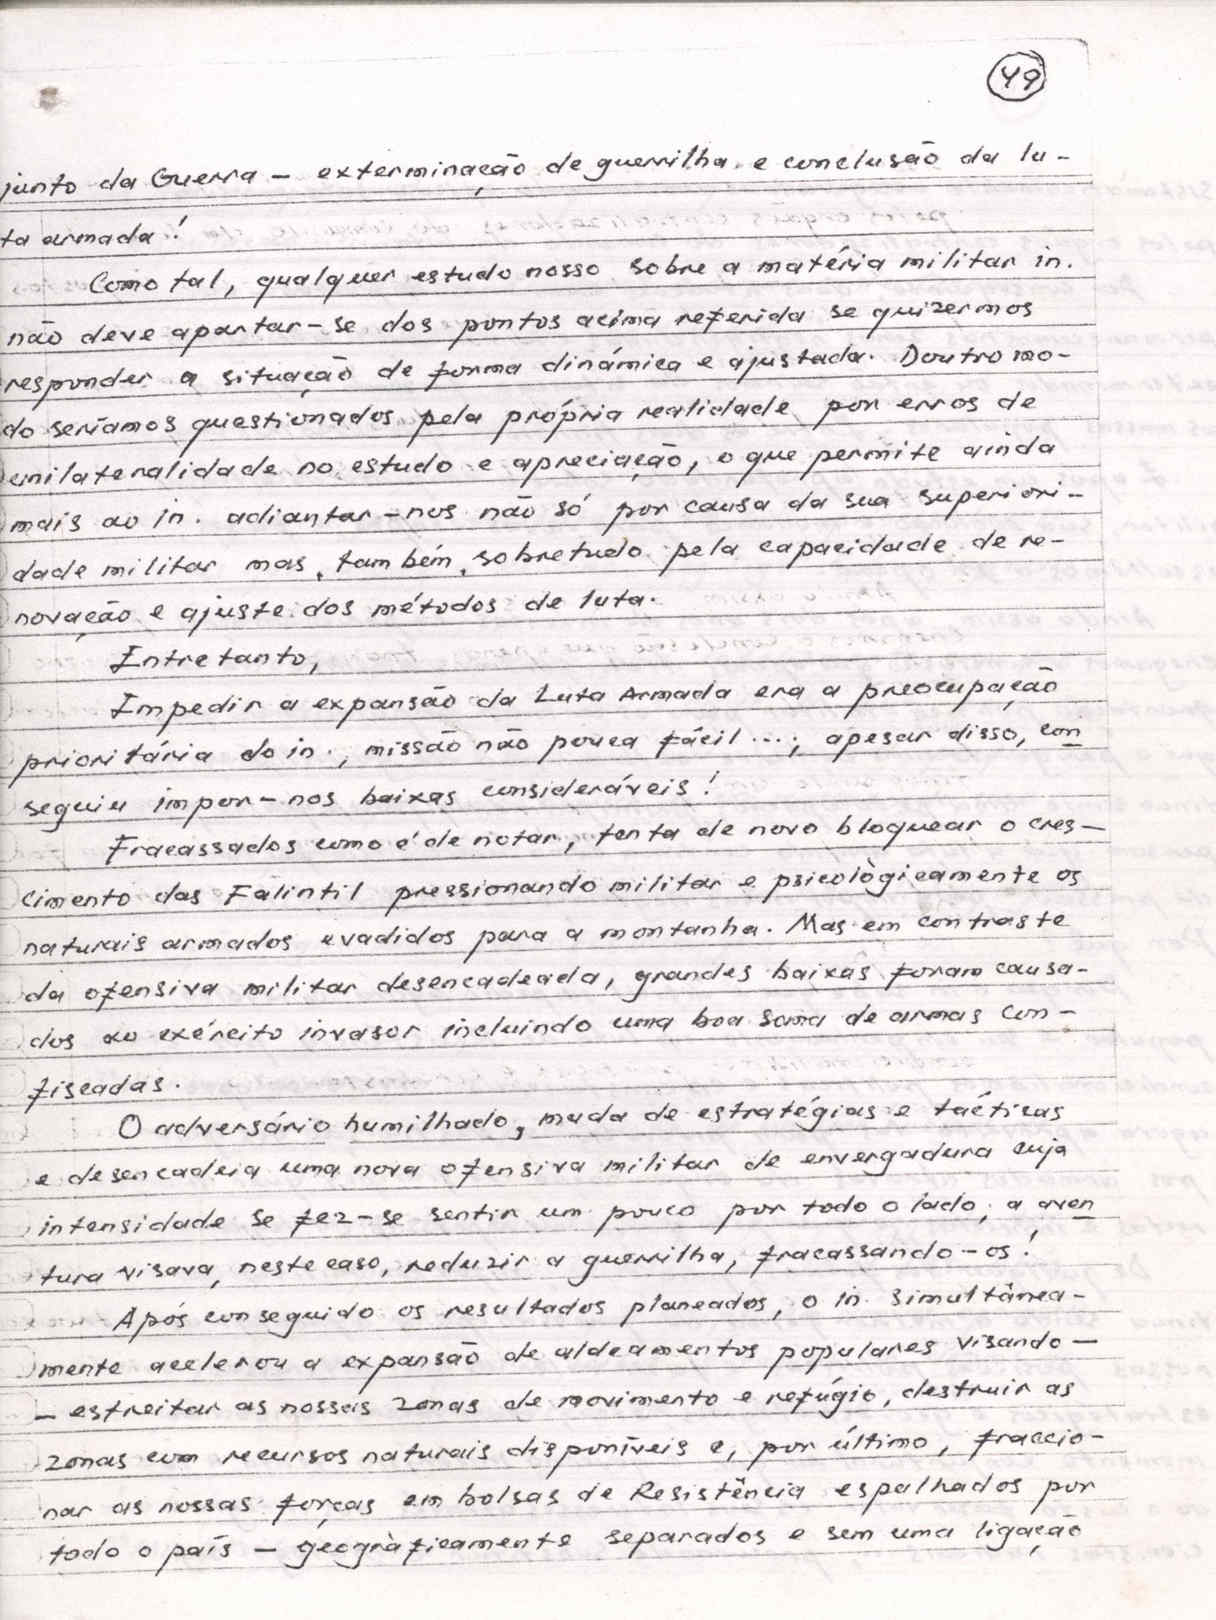 49
junto da Guerra - exterminação de guerrilha e conclusão da lu-
ta armada!
Como tal, qualquer estudo nosso sobre a matéria militar in.
não deve apartar-se dos pontos acima referida se quizermos
responder a situação de forma dinámica e ajustada. Doutro mo-
do seríamos questionados pela própria realidade por erros de
unilateralidade no estudo e apreciação, o que permite ainda
mais ao in. adiantar-nos não só por causa da sua superiori-
dade militar mas, também, sobretudo pela capacidade de re-
novação e ajuste dos métodos de luta.
Entretanto,
Impedir a expansão da Luta Armada era a preocupação
prioritária do in., missão não pouca fácil...; apesar disso, con
seguiu impor-nos baixas consideráveis!
Fracassados como é de notar, tenta de novo bloquear o cres-
cimento das Falintil pressionando militar e psicològicamente os
naturais armados evadidos para a montanha. Mas em contraste
da ofensiva militar desencadeada, grandes baixas foram causa-
dos ao exército invasor incluindo uma boa soma de armas con-
fiscadas.
O adversário humilhado, muda de estratégias e tácticas
e desencadeia uma nova ofensiva militar de envergadura cuja
intensidade se fez-se sentir um pouco por todo o lado; a aven
tura visava, neste caso, reduzir a guerrilha, fracassando-os!
Após conseguido os resultados planeados, o in. simultânea-
mente acelerou a expansão de aldeamentos populares visando-
- estreitar as nossas zonas de movimento e refúgio, destruir as
zonas com recursos naturais disponíveis e, por último, fraccio-
nar as nossas forças em bolsas de Resistência espalhados por
todo o país - geogràficamente separados e sem uma ligação